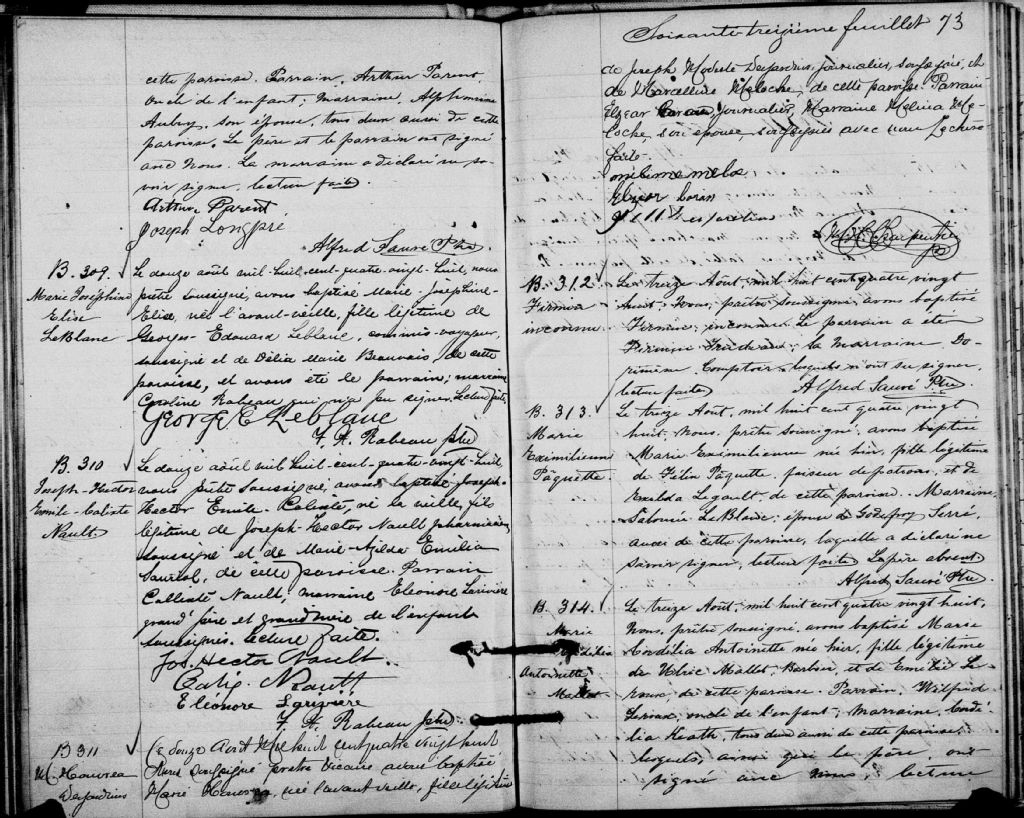 cette paroisse. Parrain, Arthur Parent,
oncle de l'enfant; marraine, Alphonsine
Aubry, son épouse, tous deux aussi de cette
paroisse. Le père et le parrain ont signé
avec Nous. La marraine a déclaré ne sa-
voir signer, lecture faite.
Arthur Parent
Joseph Longpré
Alfred Sauvé Ptre
B. 309.
Marie Joséphine
Elise
LeBlanc
Le douze août mil-huit-cent-quatre-vingt-huit, nous
prêtre soussigné, avons baptisé Marie-Joséphine-
Elise, née l'avant-veille, fille légitime de
George Edouard Leblanc, commis-voyageur,
soussigné et de Délia Marie Beauvais, de cette
paroisse, et avons été le parrain; marraine
Caroline Rabeau qui n'a pu signer. Lecture faite.
George E Leblanc
F. A. Rabeau ptre
B. 310
Joseph-Hector
Emile-Calixte
Nault
Le douze août mil-huit-cent-quatre-vingt-huit,
nous prêtre soussigné, avons baptisé Joseph-
Hector Emile-Calixte, né la veille, fils
légitime de Joseph-Hector Nault pharmacien,
soussigné et de Marie-Azilda Emilia
Sauriol, de cette paroisse. Parrain
Callixte Nault, marraine Eléonore Larivière
grand'père et grand'mère de l'enfant
soussignés. Lecture faite.
Jos. Hector Nault.
Calix. Nault
Eléonore Larivière
F. A. Rabeau ptre
B 311
Desjardins
Ce douze Août Mil huit cent quatre vingt huit
Nous soussigné prêtre vicaire avons baptisé
Marie née l'avant veille, fille légitime
Soixante-treizième feuillet 73
de Joseph Modeste Desjardins, journalier, soussigné, et
de Marcelline Meloche, de cette paroisse. Parrain
Elzear journalier, Marraine Melina Me-
loche, son épouse, soussignés avec nous Lecture
faite.
Elzear
Charpentier
B. 312
Firmin
inconnu
Le treize Août, mil huit cent quatre vingt
huit, Nous, prêtre soussigné, avons baptisé
Firmin, inconnu. Le parrain a été
Firmin Trudeau; la Marraine, Do-
rimène Comptois, lesquels n'ont su signer,
lecture faite
Alfred Sauvé Ptre
B. 313.
Marie
Eximilienne
Pâquette
Le treize Août, mil huit cent quatre vingt
huit, Nous, prêtre soussigné, avons baptisé
Marie Eximilienne née hier, fille légitime
de Félix Pâquette, faiseur de patrons, et de
Exilda Legault, de cette paroisse. Marraine,
Salomée LeBlanc, épouse de Godefroy Serré,
aussi de cette paroisse, laquelle a déclaré ne
savoir signer, lecture faite Le père absent
Alfred Sauvé Ptre
B. 314.
Marie
Cordélia
Antoinette
Mallet
Le treize Août, mil huit cent quatre vingt huit,
Nous, prêtre soussigné, avons baptisé Marie
Cordélia Antoinette née hier, fille légitime
de Mallet, Barbier, et de Emélie Le-
roux, de cette paroisse. Parrain, Wilfrid
Leroux, oncle de l'enfant; Marraine, Cordé-
lia Heath, tous deux aussi de cette paroisse,
lesquels, ainsi que le père, ont
signé avec Nous, lecture